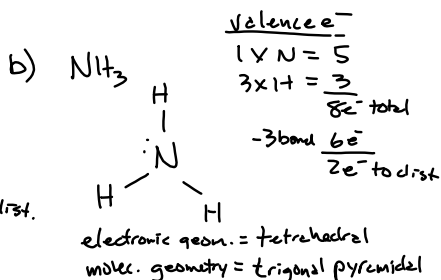 valence e⁻
b) NH₃
1 x N = 5
3 x H = 3
8e⁻ total
-3 bond 6e⁻
2e⁻ to dist
H
:N
H H
dist.
electronic geom. = tetrahedral
molec. geometry = trigonal pyramidal